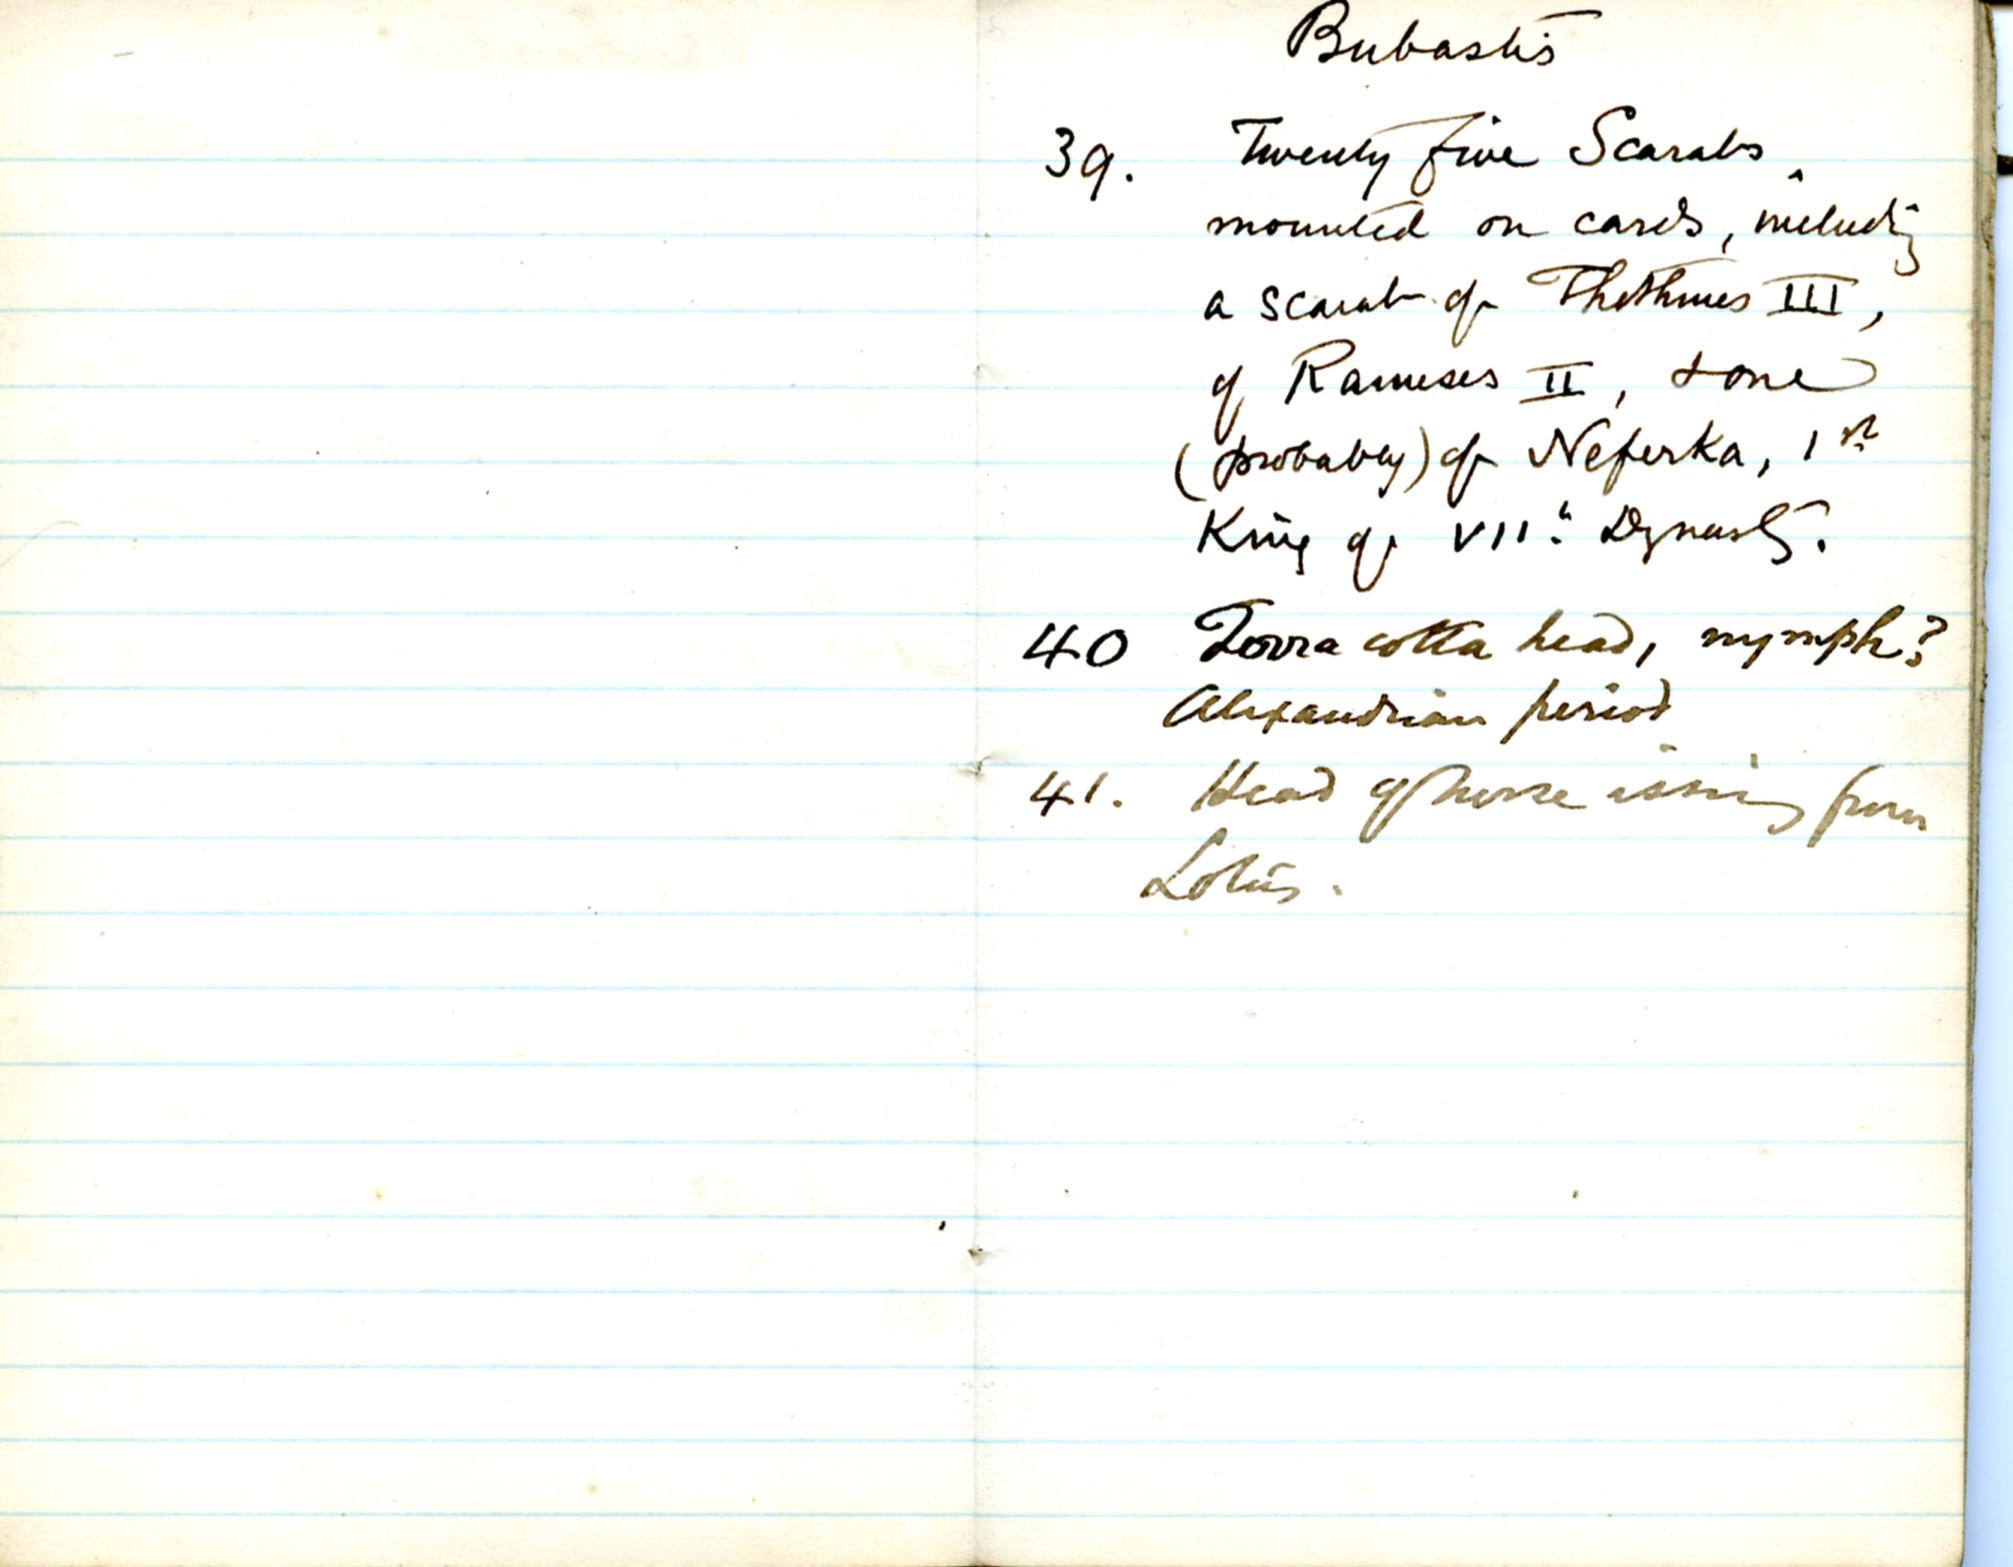 Bubastis
39. Twenty five Scarabs
mounted on cards, including
a scarab of Thothmes III,
of Rameses II, & one
(probably) of Neferka, 1st
King of VIIth Dynasty.
40 Terra cotta head, nymph?
Alexandrian period
41. Head of horse issuing from
Lotus.